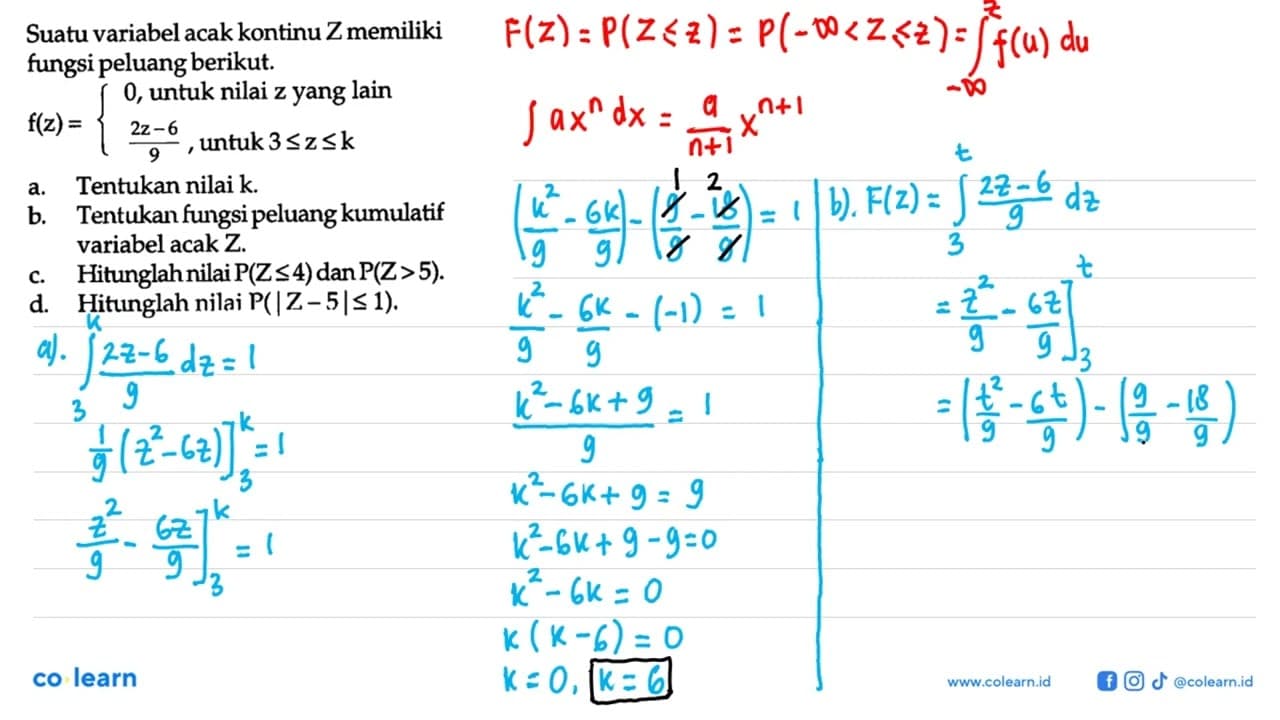 Suatu variabel acak kontinu Z memiliki
fungsi peluang berikut.
f(z) = { 0, untuk nilai z yang lain
2z – 6 / 9 , untuk 3 ≤ z ≤ k
a. Tentukan nilai k.
b. Tentukan fungsi peluang kumulatif
variabel acak Z.
c. Hitunglah nilai P(Z ≤ 4) dan P(Z > 5).
d. Hitunglah nilai P(| Z – 5 | ≤ 1).
a). ∫₃ᵏ (2z-6)/9 dz = 1
1/9 (z² - 6z)]₃ᵏ = 1
z²/9 - 6z/9 ]₃ᵏ = 1
F(z) = P(Z ≤ z) = P(-∞ < Z ≤ z) = ∫_{-∞}^{z} f(u) du
∫ axⁿ dx = a/(n+1) xⁿ⁺¹
1 2
(k²/9 - 6k/9) - (9/9 - 18/9) = 1
k²/9 - 6k/9 - (-1) = 1
(k² - 6k + 9)/9 = 1
k² - 6k + 9 = 9
k² - 6k + 9 - 9 = 0
k² - 6k = 0
k (k - 6) = 0
k = 0, k = 6
b). F(z) = ∫₃ᵗ (2z-6)/9 dz
= z²/9 - 6z/9 ]₃ᵗ
= (t²/9 - 6t/9) - (9/9 - 18/9)
co learn
www.colearn.id
@colearn.id